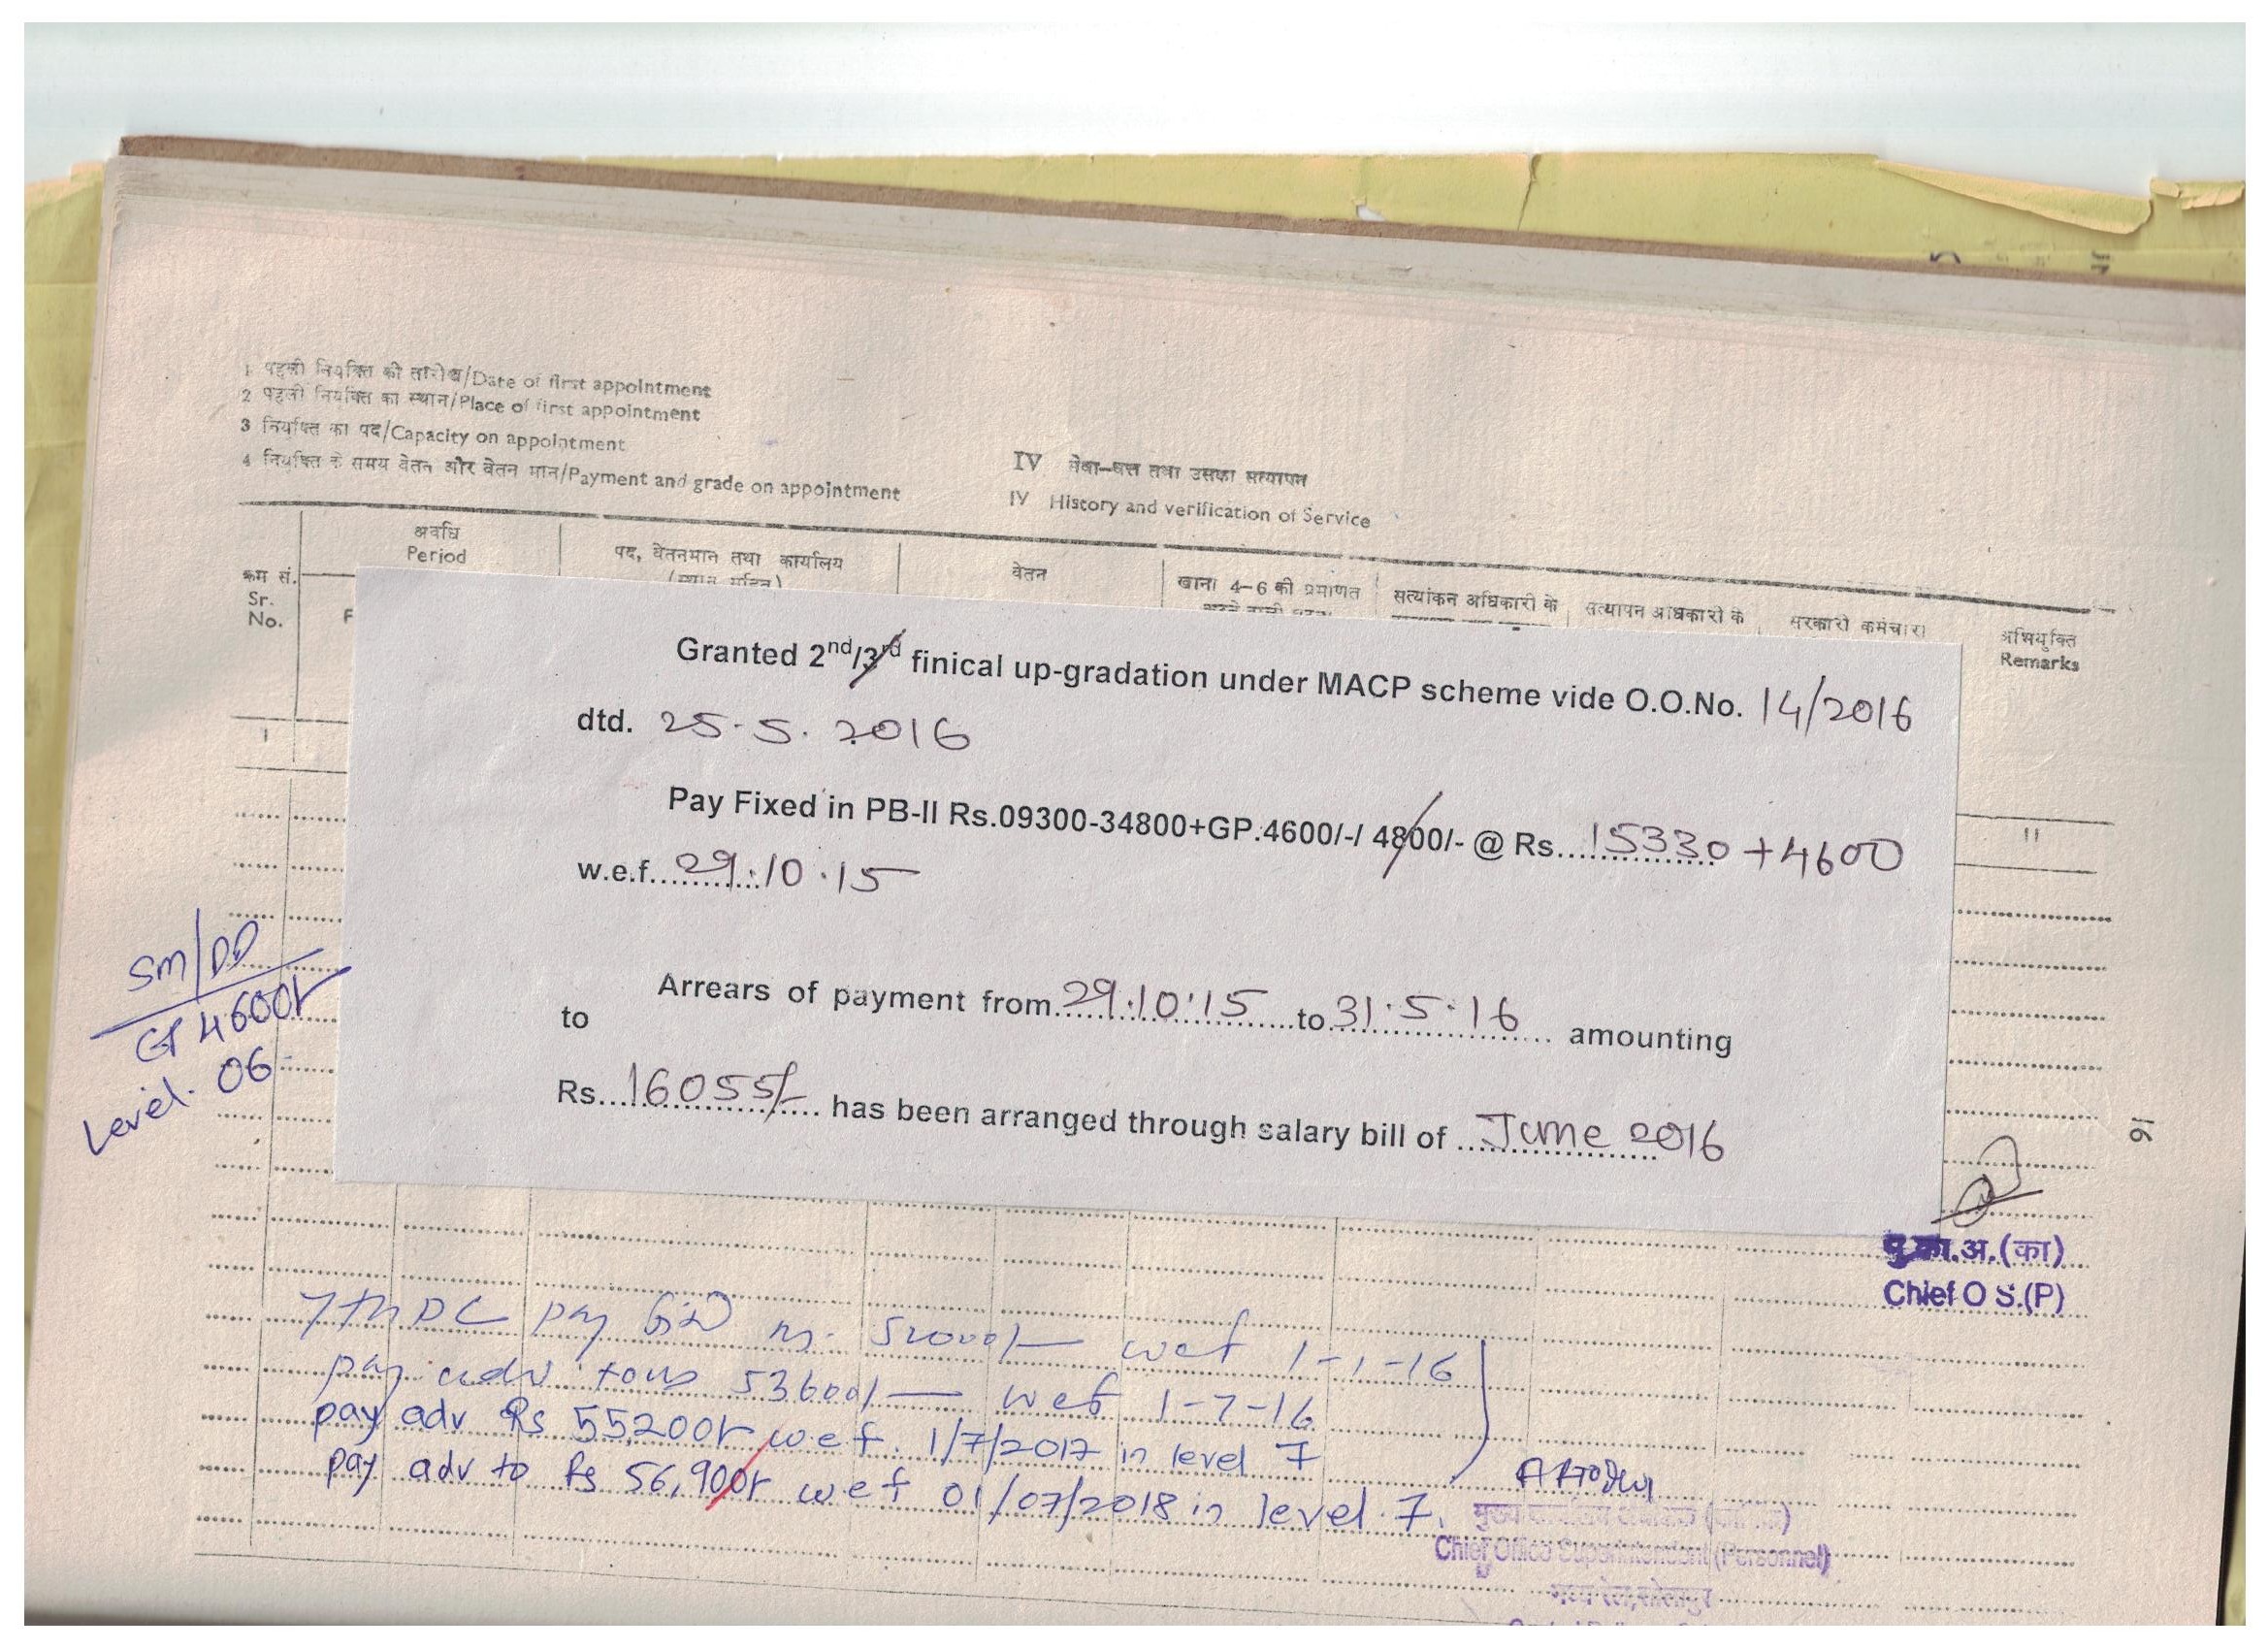 1 पहली नियुक्ति की तारीख/Date of first appointment
2 पहली नियुक्ति का स्थान/Place of first appointment
3 नियुक्ति का पद/Capacity on appointment
4 नियुक्ति के समय वेतन और वेतन मान/Payment and grade on appointment
IV सेवा-वृत्त तथा उसका सत्यापन
IV History and verification of Service
क्रम सं.
Sr.
No.
अवधि
Period
F
पद, वेतनमान तथा कार्यालय
(स्थान सहित)
वेतन
खाना 4-6 की प्रमाणित
सत्यांकन अधिकारी के
सत्यापन अधिकारी के
सरकारी कर्मचारी
अभियुक्ति
Remarks
1
11
Granted 2nd/3rd finical up-gradation under MACP scheme vide O.O.No. 14/2016
dtd. 25.5.2016
Pay Fixed in PB-II Rs.09300-34800+GP.4600/-/ 4800/- @ Rs...15330+4600
w.e.f...29.10.15
Arrears of payment from 29.10.15 to 31.5.16 amounting
to
Rs...16055/- has been arranged through salary bill of ...June 2016
SM/DD
GP 4600/-
Level. 06
16
मु.का.अ.(का)
Chief O S.(P)
7th PC pay fix Rs. 52000/- wef 1-1-16
pay adv to Rs 53600/- wef 1-7-16
pay adv Rs 55,200/- wef. 1/7/2017 in level 7
pay adv to Rs 56,900/- wef 01/07/2018 in level 7.
मुख्य कार्यालय अधीक्षक (कार्मिक)
Chief Office Superintendent (Personnel)
मध्य रेल, सोलापुर